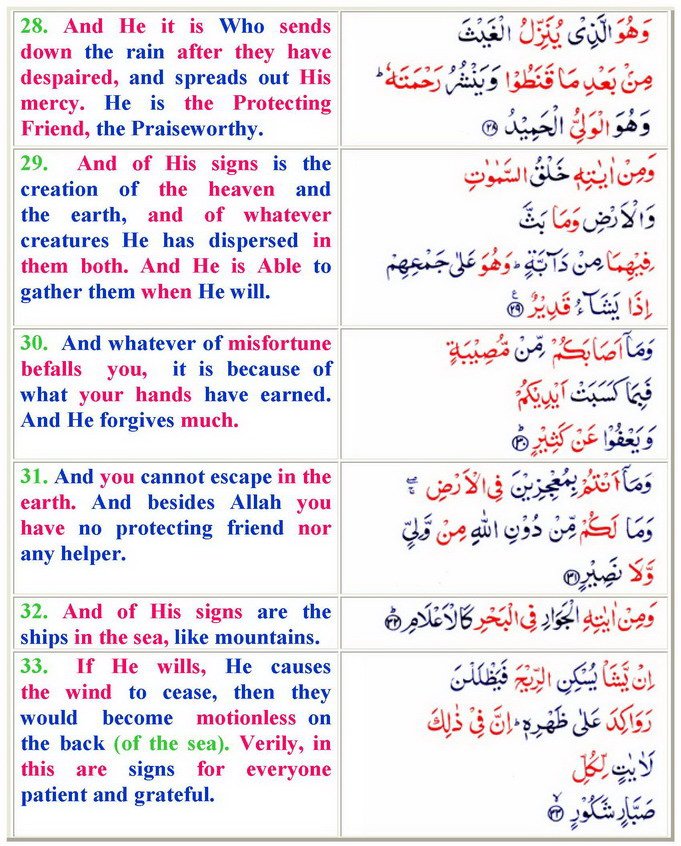 28. And He it is Who sends
down the rain after they have
despaired, and spreads out His
mercy. He is the Protecting
Friend, the Praiseworthy.
وَهُوَ الَّذِىْ يُنَزِّلُ الْغَيْثَ
مِنْۢ بَعْدِ مَا قَنَطُوْا وَيَنْشُرُ رَحْمَتَهٗ ؕ
وَهُوَ الْوَلِىُّ الْحَمِيْدُ ﴿۲۸﴾
29. And of His signs is the
creation of the heaven and
the earth, and of whatever
creatures He has dispersed in
them both. And He is Able to
gather them when He will.
وَمِنْ اٰيٰتِهٖ خَلْقُ السَّمٰوٰتِ
وَالْاَرْضِ وَمَا بَثَّ
فِيْهِمَا مِنْ دَآبَّةٍ ؕ وَهُوَ عَلٰى جَمْعِهِمْ
اِذَا يَشَآءُ قَدِيْرٌ ﴿۲۹﴾
30. And whatever of misfortune
befalls you, it is because of
what your hands have earned.
And He forgives much.
وَمَاۤ اَصَابَكُمْ مِّنْ مُّصِيْبَةٍ
فَبِمَا كَسَبَتْ اَيْدِيْكُمْ
وَيَعْفُوْا عَنْ كَثِيْرٍ ﴿۳۰﴾
31. And you cannot escape in the
earth. And besides Allah you
have no protecting friend nor
any helper.
وَمَاۤ اَنْتُمْ بِمُعْجِزِيْنَ فِى الْاَرْضِ
وَمَا لَكُمْ مِّنْ دُوْنِ اللّٰهِ مِنْ وَّلِىٍّ
وَّلَا نَصِيْرٍ ﴿۳۱﴾
32. And of His signs are the
ships in the sea, like mountains.
وَمِنْ اٰيٰتِهِ الْجَوَارِ فِى الْبَحْرِ كَالْاَعْلَامِ ﴿۳۲﴾
33. If He wills, He causes
the wind to cease, then they
would become motionless on
the back (of the sea). Verily, in
this are signs for everyone
patient and grateful.
اِنْ يَّشَاْ يُسْكِنِ الرِّيْحَ فَيَظْلَلْنَ
رَوَاكِدَ عَلٰى ظَهْرِهٖ ؕ اِنَّ فِىْ ذٰلِكَ
لَاٰيٰتٍ لِّكُلِّ
صَبَّارٍ شَكُوْرٍ ﴿۳۳﴾